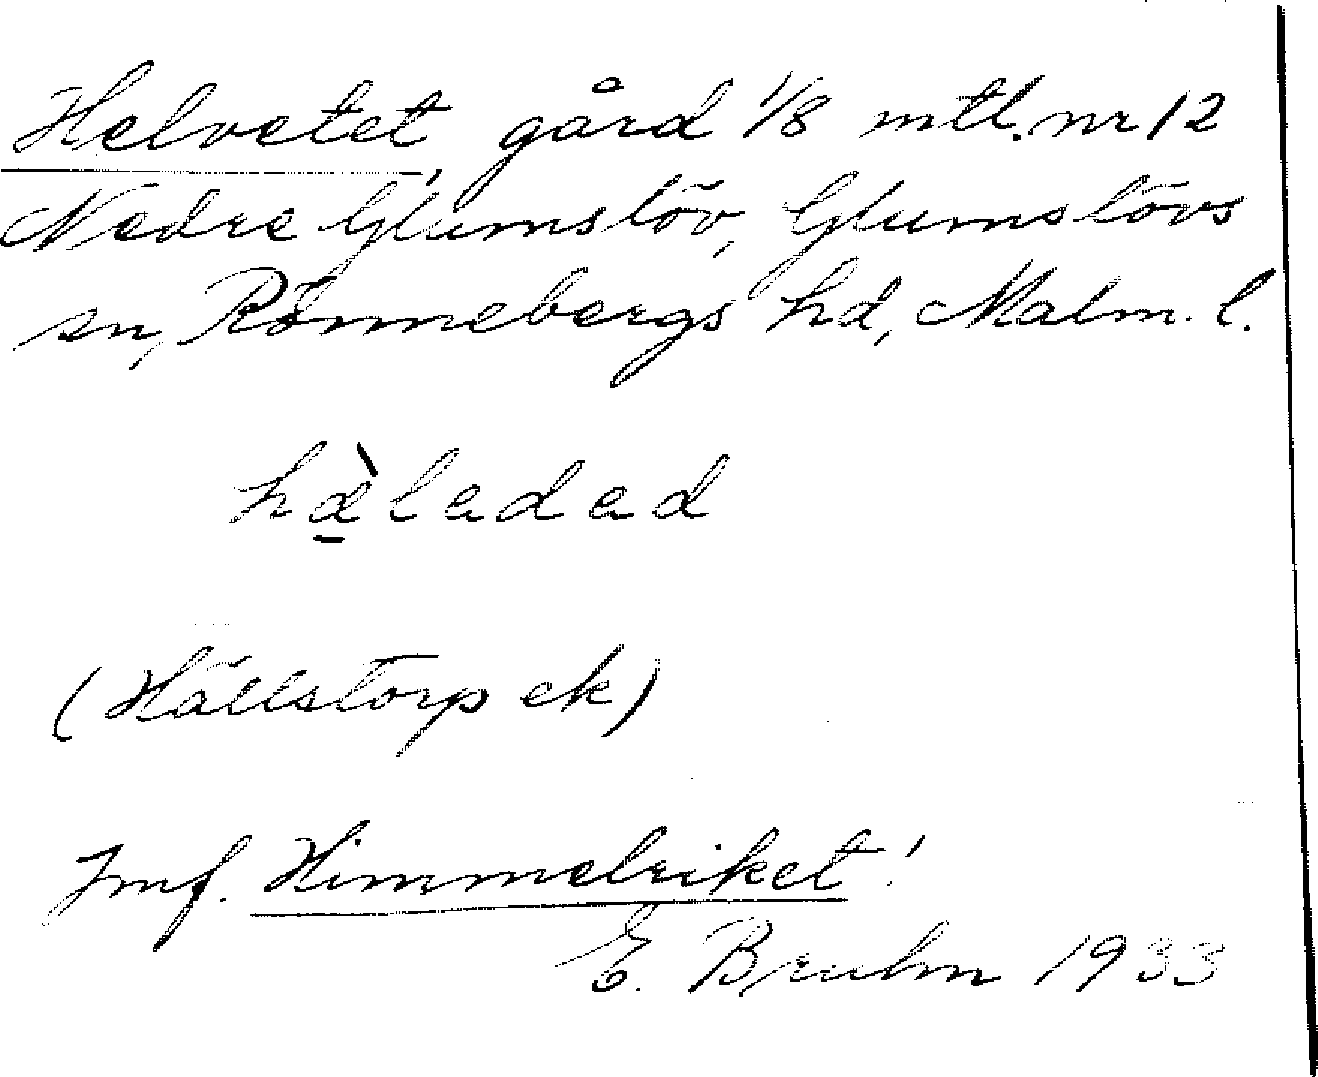 Helvetet, gård 1/8 mtl. nr 12
Nedre Glumslöv, Glumslövs
sn, Rönnebergs hd, Malm. l.
hæ̱̀ladad
(Hällstorp ek)
Jmf. Himmelriket!
E. Bruhn 1933